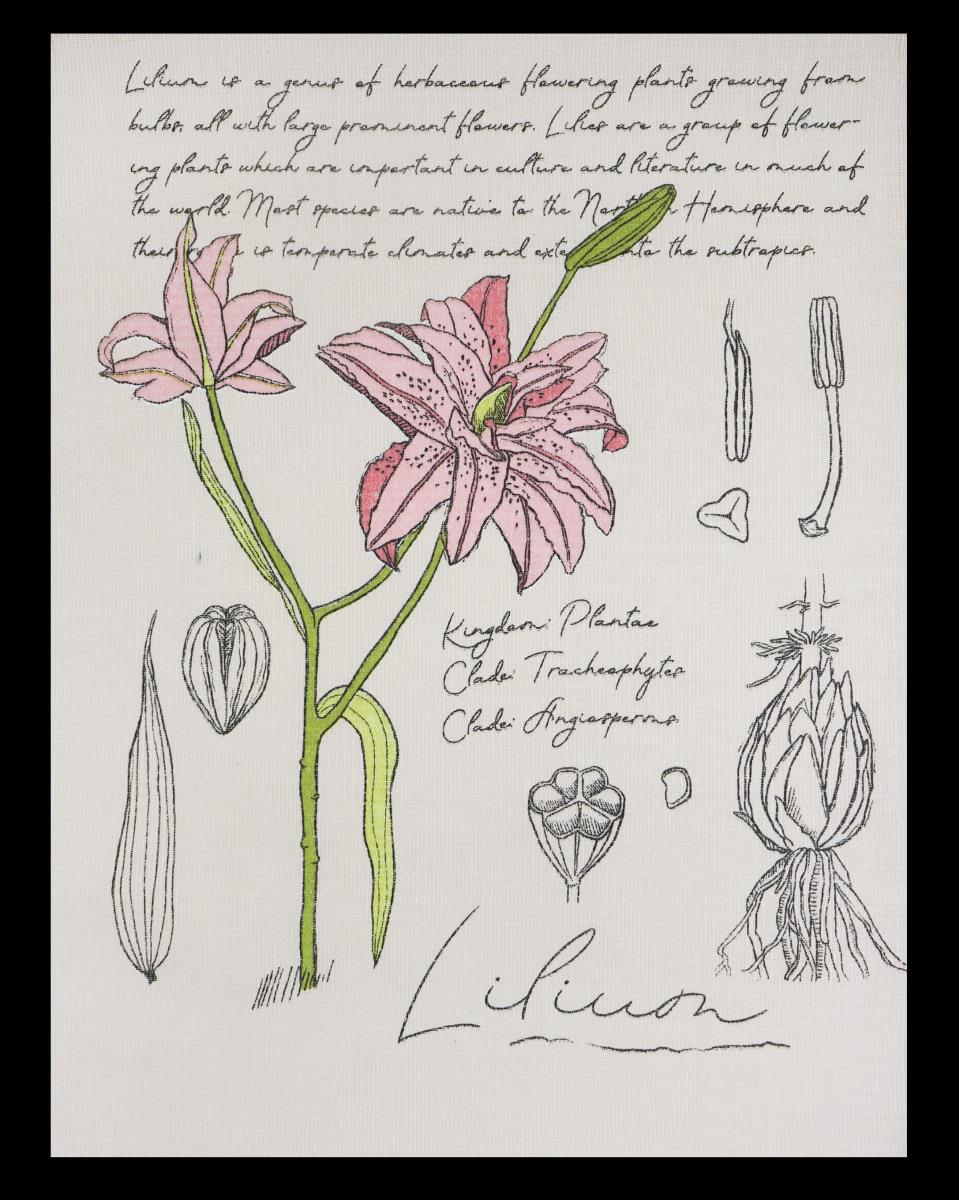 Lilium is a genus of herbaceous flowering plants growing from
bulbs, all with large prominent flowers. Lilies are a group of flower-
ing plants which are important in culture and literature in much of
the world. Most species are native to the Hemisphere and
their is temperate climates and the subtropics.
Kingdom: Plantae
Clade: Tracheophytes
Clade: Angiosperms
Lilium